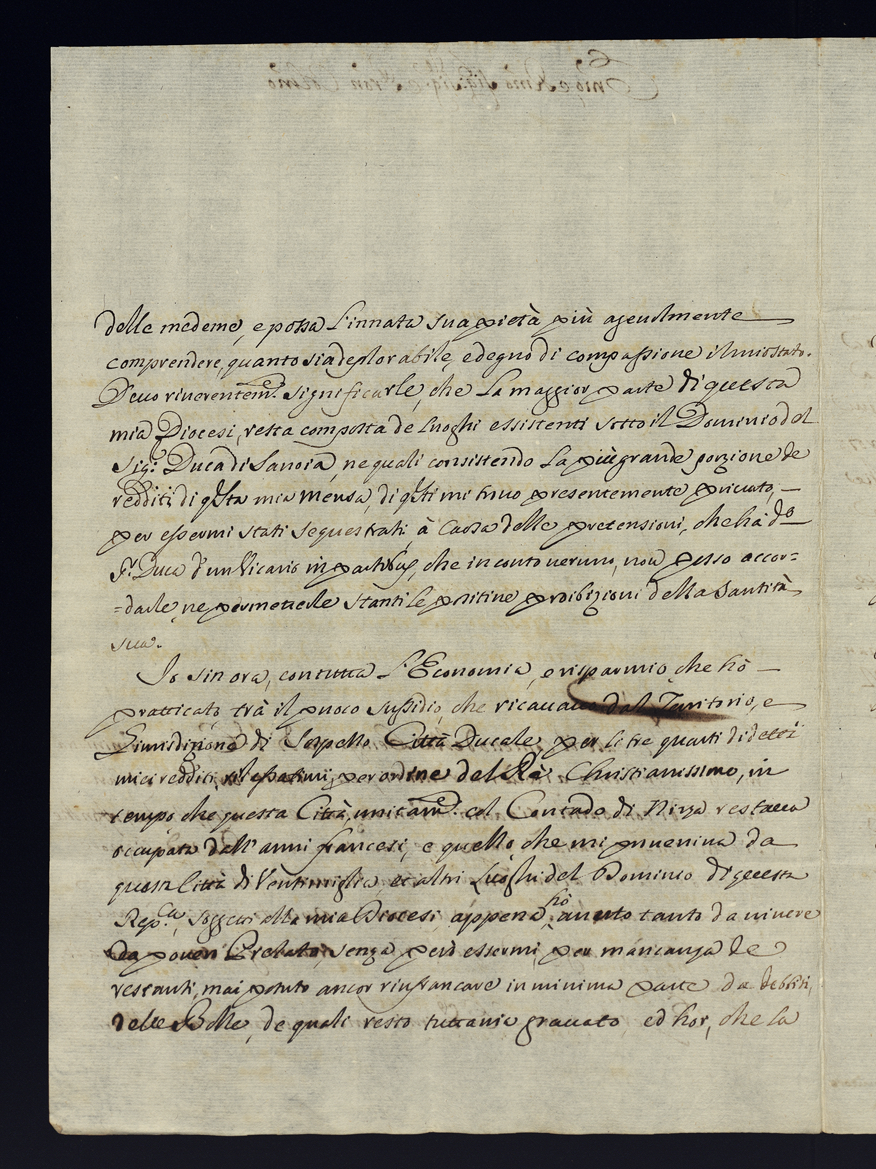 delle medeme, e possa l'innata sua pietà più agevolmente
comprendere, quanto sia deplorabile, e degno di compassione il mio stato.
Devo riverentem.e significarle, che la maggior parte di questa
mia Diocesi, resta composta de luoghi essistenti sotto il Dominio del
Sig.r Duca di Savoia, ne quali consistendo la più grande porzione de
redditi di q.sta mia mensa, di q.sti mi trovo presentemente privato,
per essermi stati sequestrati à causa delle pretensioni, che hà d.o
S.r Duca d'un Vicario in partibus, che in conto veruno, non posso accor=
=darle, ne permetterle stanti le positive proibizioni della Santità
sua.
Io sin ora, con tutta l'Economia, e risparmio, che hò
pratticato, trà il puoco sussidio, che ricavavo dal Territorio, e
Giurisdizione di Sospello Città Ducale per li tre quarti di detti
miei redditi, per ordine del Rè Christianissimo, in
tempo che questa Città, unitam.e col Contado di Nizza restava
occupata dall'armi francesi, e quello che mi proveniva da
questa Città di Ventimiglia et altri Luoghi del Dominio di questa
Rep.ca, soggetti alla mia Diocesi, appena hò avuto tanto da vivere
da povero Prelato, senza però essermi per mancanza de
restanti, mai potuto ancor rinfrancare in minima parte da debiti,
delle Bolle, de quali resto tuttavia gravato ed hor, che la